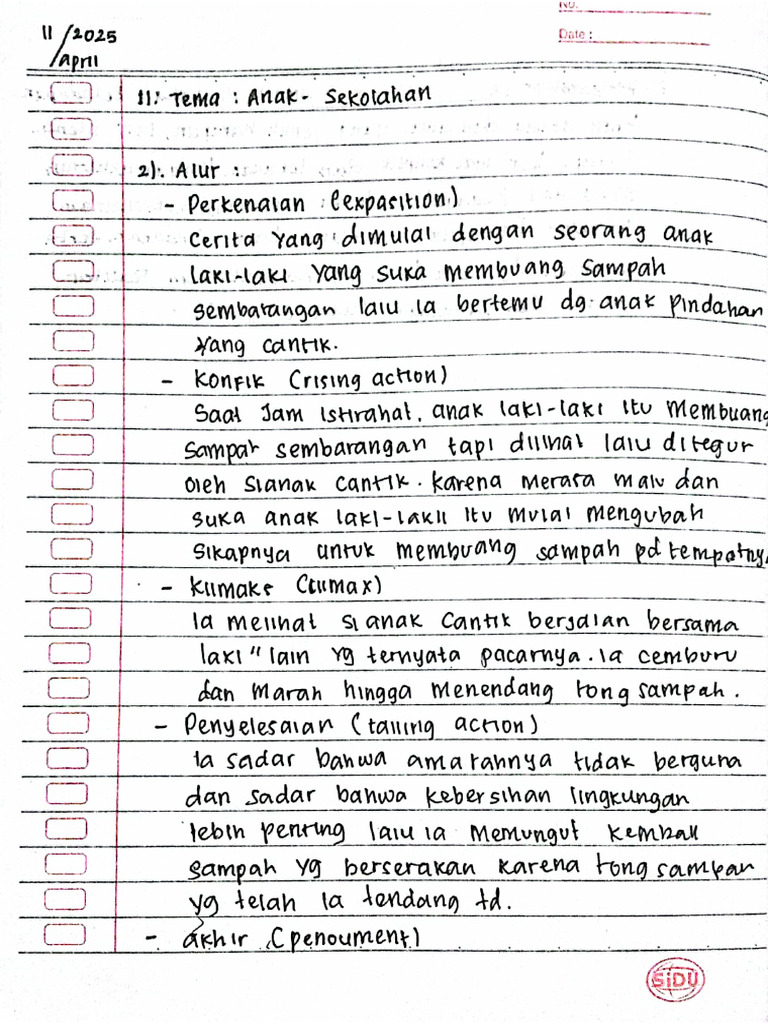 No.
Date :
11/2025
/April
1). Tema : Anak- Sekolahan
2). Alur :
- Perkenalan (expasition)
Cerita yang dimulai dengan seorang anak
laki-laki yang suka membuang sampah
sembarangan lalu ia bertemu dg anak pindahan
yang cantik.
- Konfik (rising action)
Saat Jam istirahat, anak laki-laki itu membuang
sampah sembarangan tapi dilihat lalu ditegur
oleh sianak cantik. karena merasa malu dan
suka anak laki-lakii itu mulai mengubah
sikapnya untuk membuang sampah pd tempatny
- Klimaks (climax)
Ia melihat sianak cantik berjalan bersama
laki" lain yg ternyata pacarnya. ia cemburu
dan marah hingga menendang tong sampah.
- Penyelesaian (falling action)
Ia sadar bahwa amarahnya tidak berguna
dan sadar bahwa kebersihan lingkungan
lebih penting lalu ia memungut kembali
sampah yg berserakan karena tong sampah
yg telah ia tendang td.
- akhir (penoument)
SiDU